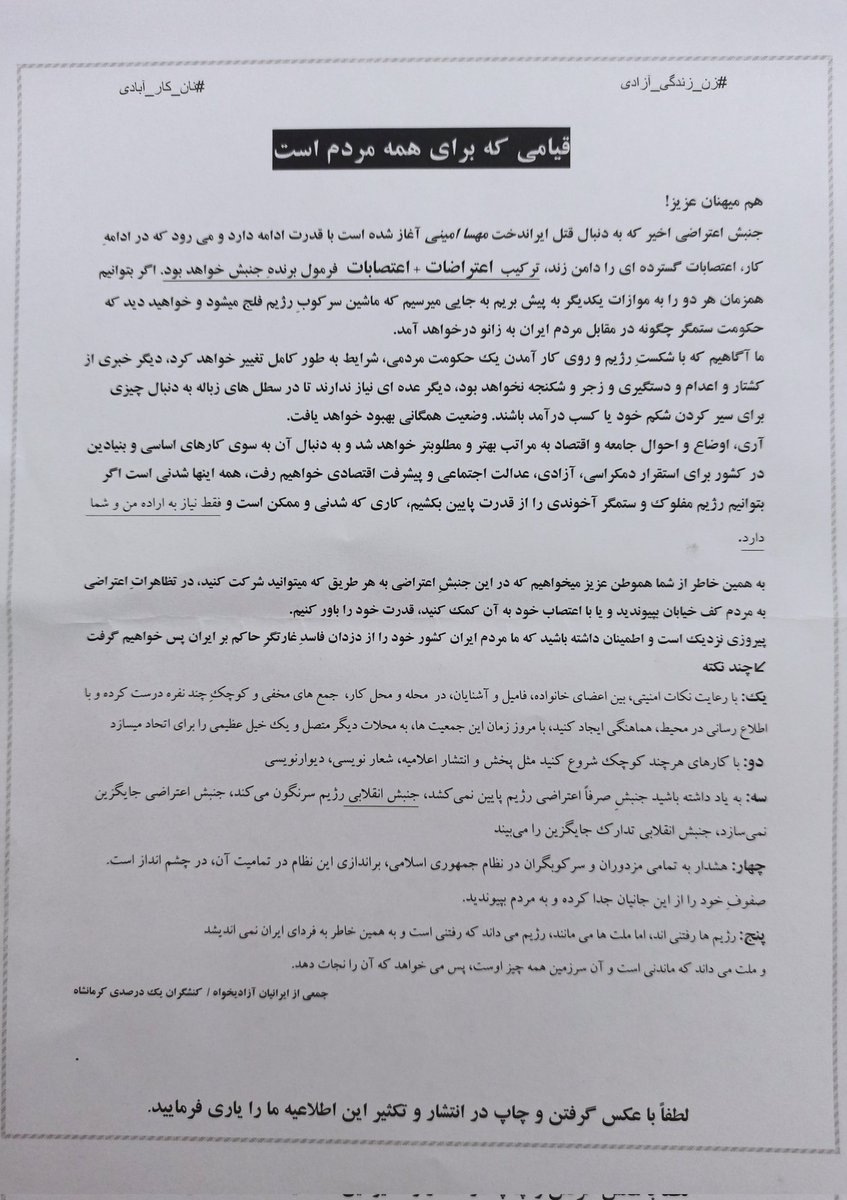 #زن_زندگی_آزادی
#نان_کار_آبادی
قیامی که برای همه مردم است
هم میهنان عزیز!
جنبش اعتراضی اخیر که به دنبال قتل ایراندخت مهسا امینی آغاز شده است با قدرت ادامه دارد و می رود که در ادامهِ
کار، اعتصابات گسترده ای را دامن زند، ترکیب اعتراضات + اعتصابات فرمول برندهِ جنبش خواهد بود. اگر بتوانیم
همزمان هر دو را به موازات یکدیگر به پیش بریم به جایی میرسیم که ماشین سرکوبِ رژیم فلج میشود و خواهید دید که
حکومت ستمگر چگونه در مقابل مردم ایران به زانو درخواهد آمد.
ما آگاهیم که با شکستِ رژیم و روی کار آمدن یک حکومت مردمی، شرایط به طور کامل تغییر خواهد کرد، دیگر خبری از
کشتار و اعدام و دستگیری و زجر و شکنجه نخواهد بود، دیگر عده ای نیاز ندارند تا در سطل های زباله به دنبال چیزی
برای سیر کردن شکم خود یا کسب درآمد باشند. وضعیت همگانی بهبود خواهد یافت.
آری، اوضاع و احوال جامعه و اقتصاد به مراتب بهتر و مطلوبتر خواهد شد و به دنبال آن به سوی کارهای اساسی و بنیادین
در کشور برای استقرار دمکراسی، آزادی، عدالت اجتماعی و پیشرفت اقتصادی خواهیم رفت، همه اینها شدنی است اگر
بتوانیم رژیم مفلوک و ستمگر آخوندی را از قدرت پایین بکشیم، کاری که شدنی و ممکن است و فقط نیاز به اراده من و شما
دارد.
به همین خاطر از شما هموطن عزیز میخواهیم که در این جنبشِ اعتراضی به هر طریق که میتوانید شرکت کنید، در تظاهراتِ اعتراضی
به مردم کف خیابان بپیوندید و یا با اعتصاب خود به آن کمک کنید، قدرت خود را باور کنیم.
پیروزی نزدیک است و اطمینان داشته باشید که ما مردم ایران کشور خود را از دزدان فاسدِ غارتگرِ حاکم بر ایران پس خواهیم گرفت
↙چند نکته
یک: با رعایت نکات امنیتی، بین اعضای خانواده، فامیل و آشنایان، در محله و محل کار، جمع های مخفی و کوچکِ چند نفره درست کرده و با
اطلاع رسانی در محیط، هماهنگی ایجاد کنید، با مرور زمان این جمعیت ها، به محلات دیگر متصل و یک خیل عظیمی را برای اتحاد میسازد
دو: با کارهای هرچند کوچک شروع کنید مثل پخش و انتشار اعلامیه، شعار نویسی، دیوارنویسی
سه: به یاد داشته باشید جنبشِ صرفاً اعتراضی رژیم پایین نمی‌کشد، جنبش انقلابی رژیم سرنگون می‌کند، جنبش اعتراضی جایگزین
نمی‌سازد، جنبش انقلابی تدارک جایگزین را می‌بیند
چهار: هشدار به تمامی مزدوران و سرکوبگران در نظام جمهوری اسلامی، براندازی این نظام در تمامیت آن، در چشم انداز است.
صفوفِ خود را از این جانیان جدا کرده و به مردم بپیوندید.
پنج: رژیم ها رفتنی اند، اما ملت ها می مانند، رژیم می داند که رفتنی است و به همین خاطر به فردای ایران نمی اندیشد
و ملت می داند که ماندنی است و آن سرزمین همه چیز اوست، پس می خواهد که آن را نجات دهد.
جمعی از ایرانیان آزادیخواه / کنشگران یک درصدی کرمانشاه
لطفاً با عکس گرفتن و چاپ در انتشار و تکثیر این اطلاعیه ما را یاری فرمایید.